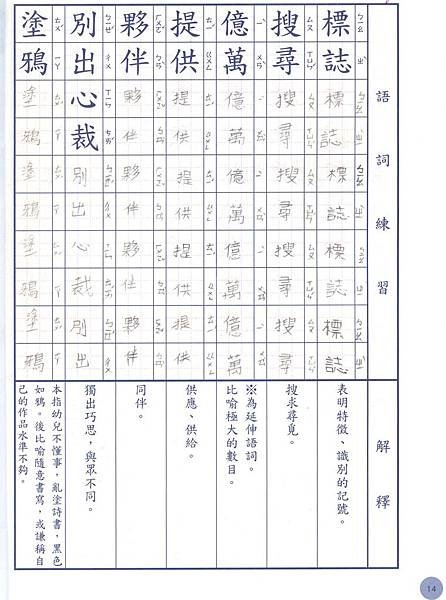 語詞練習
解釋
標誌
標誌標誌標誌標誌
表明特徵、識別的記號。
搜尋
搜尋搜尋搜尋搜尋
搜求尋覓。
億萬
億萬億萬億萬億萬
※為延伸語詞。
比喻極大的數目。
提供
提供提供提供提供
供應、供給。
夥伴
夥伴夥伴夥伴夥伴
同伴。
別出心裁
別出心裁別出
獨出巧思，與眾不同。
塗鴉
塗鴉塗鴉塗鴉塗鴉
本指幼兒不懂事，亂塗詩書，黑色
如鴉。後比喻隨意書寫，或謙稱自
己的作品水準不夠。
14